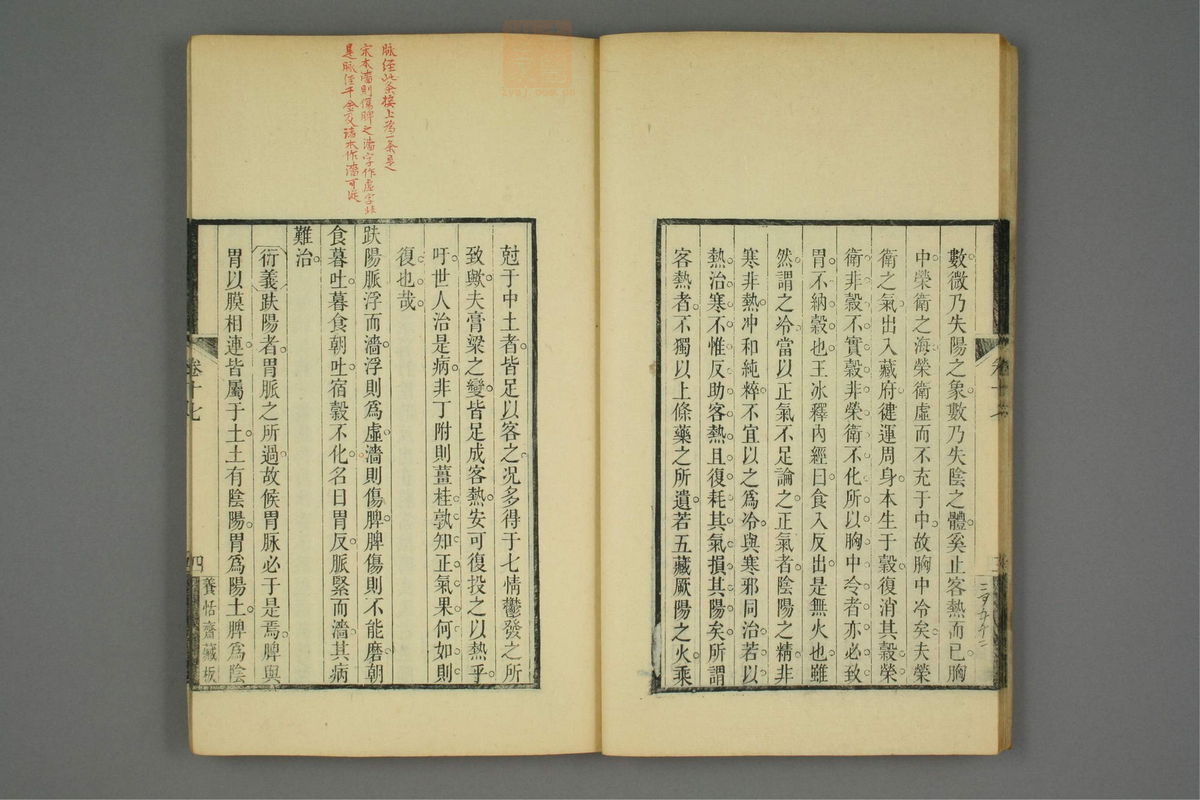 數微乃失陽之象數乃失陰之體奚止客熱而已胸
中榮衛之海榮衛虛而不充于中故胸中冷矣夫榮
衛之氣出入藏府徤運周身本生于穀復消其穀榮
衛非穀不實穀非榮衛不化所以胸中冷者亦必致
胃不納穀也王冰釋內經曰食入反出是無火也雖
然謂之冷當以正氣不足論之正氣者陰陽之精非
寒非熱冲和純粹不宜以之為冷與寒邪同治若以
熱治寒不惟反助客熱且復耗其氣損其陽矣所謂
客熱者不獨以上條藥之所遺若五藏厥陽之火乘
脉经此条接上为一条是
宋本濇則傷脾之濇字作虛字非
是脉经千金及諸本作濇可從
尅于中土者皆足以客之况多得于七情鬱發之所
致歟夫膏梁之變皆足成客熱安可復投之以熱乎
吁世人治是病非丁附則薑桂孰知正氣果何如則
復也哉
趺陽脈浮而濇浮則爲虛濇則傷脾脾傷則不能磨朝
食暮吐暮食朝吐宿穀不化名曰胃反脈緊而濇其病
難治
衍義趺陽者胃脈之所過故候胃脈必于是焉脾與
胃以膜相連皆屬于土土有陰陽胃爲陽土脾爲陰
卷十七
四
養恬齋藏板